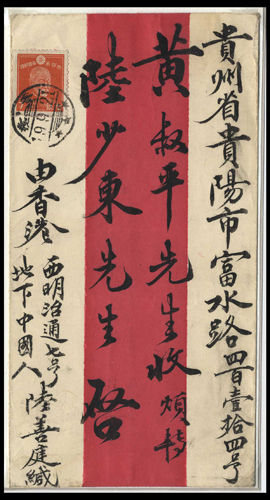 貴州省貴陽市富水路四百壹拾四号
黄叔平先生收煩轉
陸少東先生啓
由香港
西明治通七号
地下中國人
陸善庭緘